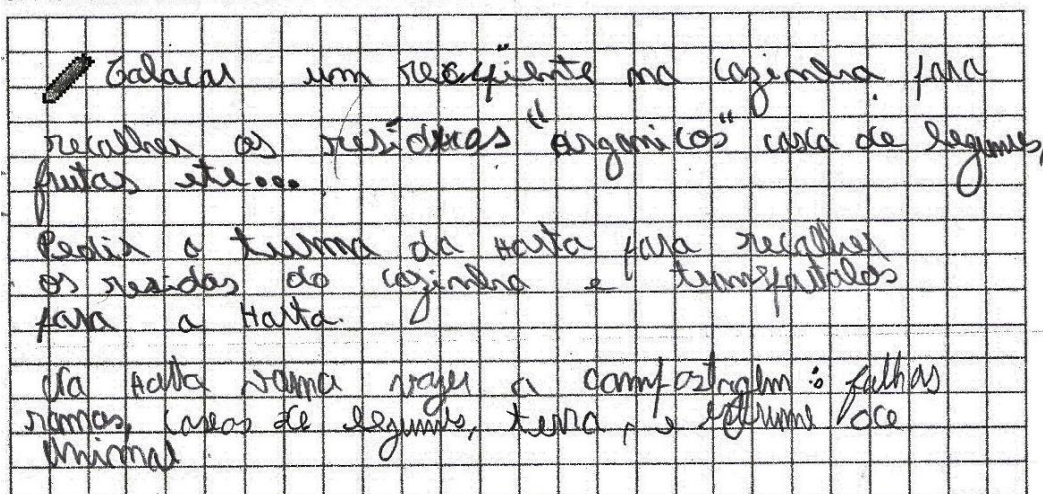 Colocar um recipiente na cozinha para
recolher os resíduos "organicos" casca de legumes,
frutas etc...
Pedir a turma da Horta para recolher
os residos da cozinha e transportalos
para a Horta.
Na Horta vamo a compostagem : folhas
ramos, cascas de legumes, terra, e estrume de
animal